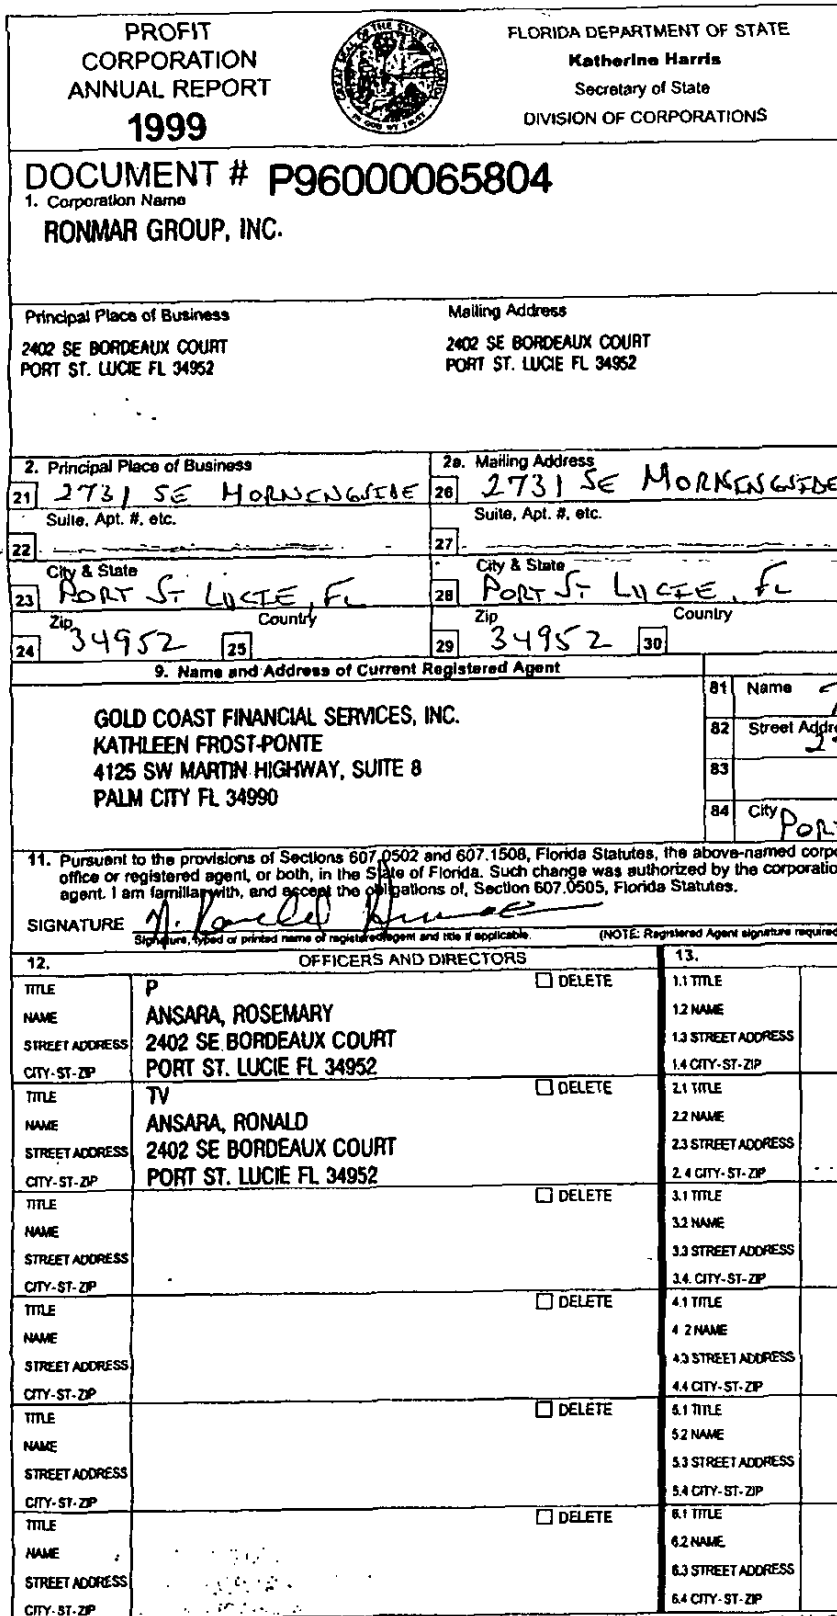 PROFIT
CORPORATION
ANNUAL REPORT
1999
GREAT SEAL OF THE STATE OF FLORIDA
IN GOD WE TRUST
FLORIDA DEPARTMENT OF STATE
Katherine Harris
Secretary of State
DIVISION OF CORPORATIONS
DOCUMENT # P96000065804
1. Corporation Name
RONMAR GROUP, INC.
Principal Place of Business
2402 SE BORDEAUX COURT
PORT ST. LUCIE FL 34952
Mailing Address
2402 SE BORDEAUX COURT
PORT ST. LUCIE FL 34952
2. Principal Place of Business
21 2731 SE MORNINGSIDE
Suite, Apt. #, etc.
22
City & State
23 PORT ST LUCIE, FL
Zip Country
24 34952 25
2a. Mailing Address
26 2731 SE MORNINGSIDE
Suite, Apt. #, etc.
27
City & State
28 PORT ST LUCIE, FL
Zip Country
29 34952 30
9. Name and Address of Current Registered Agent
GOLD COAST FINANCIAL SERVICES, INC.
KATHLEEN FROST-PONTE
4125 SW MARTIN HIGHWAY, SUITE 8
PALM CITY FL 34990
81 Name
82 Street Addre
83
84 City PORT
11. Pursuant to the provisions of Sections 607.0502 and 607.1508, Florida Statutes, the above-named corpo
office or registered agent, or both, in the State of Florida. Such change was authorized by the corporatio
agent. I am familiar with, and accept the obligations of, Section 607.0505, Florida Statutes.
SIGNATURE
Signature, typed or printed name of registered agent and title if applicable. (NOTE: Registered Agent signature required
12. OFFICERS AND DIRECTORS
TITLE P DELETE
NAME ANSARA, ROSEMARY
STREET ADDRESS 2402 SE BORDEAUX COURT
CITY-ST-ZIP PORT ST. LUCIE FL 34952
TITLE TV DELETE
NAME ANSARA, RONALD
STREET ADDRESS 2402 SE BORDEAUX COURT
CITY-ST-ZIP PORT ST. LUCIE FL 34952
TITLE DELETE
NAME
STREET ADDRESS
CITY-ST-ZIP
TITLE DELETE
NAME
STREET ADDRESS
CITY-ST-ZIP
TITLE DELETE
NAME
STREET ADDRESS
CITY-ST-ZIP
TITLE DELETE
NAME
STREET ADDRESS
CITY-ST-ZIP
13.
1.1 TITLE
1.2 NAME
1.3 STREET ADDRESS
1.4 CITY-ST-ZIP
2.1 TITLE
2.2 NAME
2.3 STREET ADDRESS
2.4 CITY-ST-ZIP
3.1 TITLE
3.2 NAME
3.3 STREET ADDRESS
3.4. CITY-ST-ZIP
4.1 TITLE
4.2 NAME
4.3 STREET ADDRESS
4.4 CITY-ST-ZIP
5.1 TITLE
5.2 NAME
5.3 STREET ADDRESS
5.4 CITY-ST-ZIP
6.1 TITLE
6.2 NAME
6.3 STREET ADDRESS
6.4 CITY-ST-ZIP